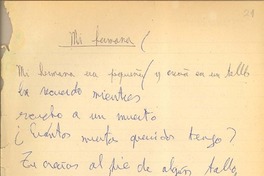 21
Mi hermana (
Mi hermana era pequeña / y crecía en un tallo
En recuerdo mientras
escucho a un muerto
¿Cuántos muertos queridos tengo?
Tu crecías al pie de algún tallo